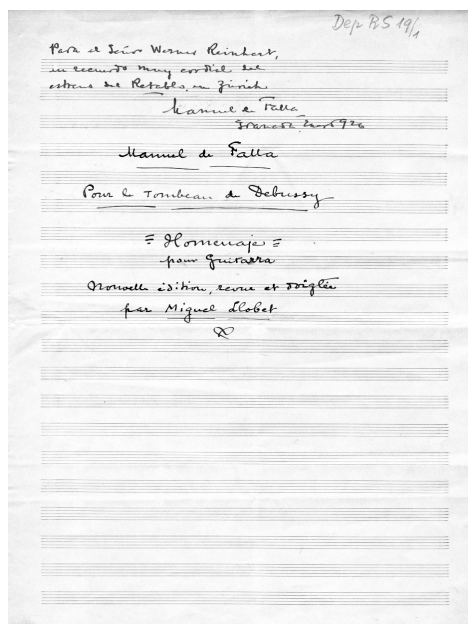 Dep RS 19/1
Para el Señor Werner Reinhart,
en recuerdo muy cordial del
estreno del Retablo, en Zürich
Manuel de Falla
Granada 1926
Manuel de Falla
Pour le Tombeau de Debussy
= Homenaje =
pour Guitarra
Nouvelle édition, revue et doigtée
par Miguel Llobet